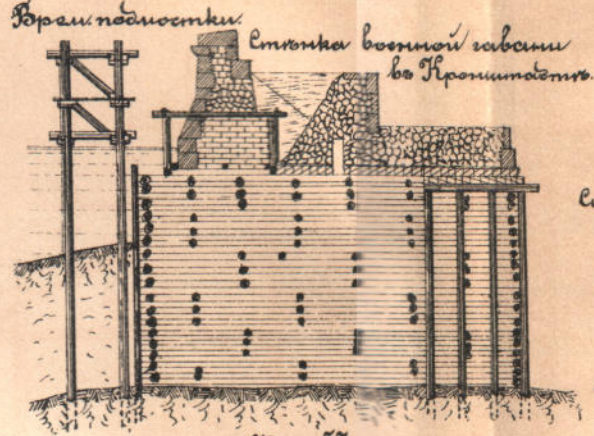 Врем. подмостки.
Стѣнка военной гавани
въ Кронштадтѣ.